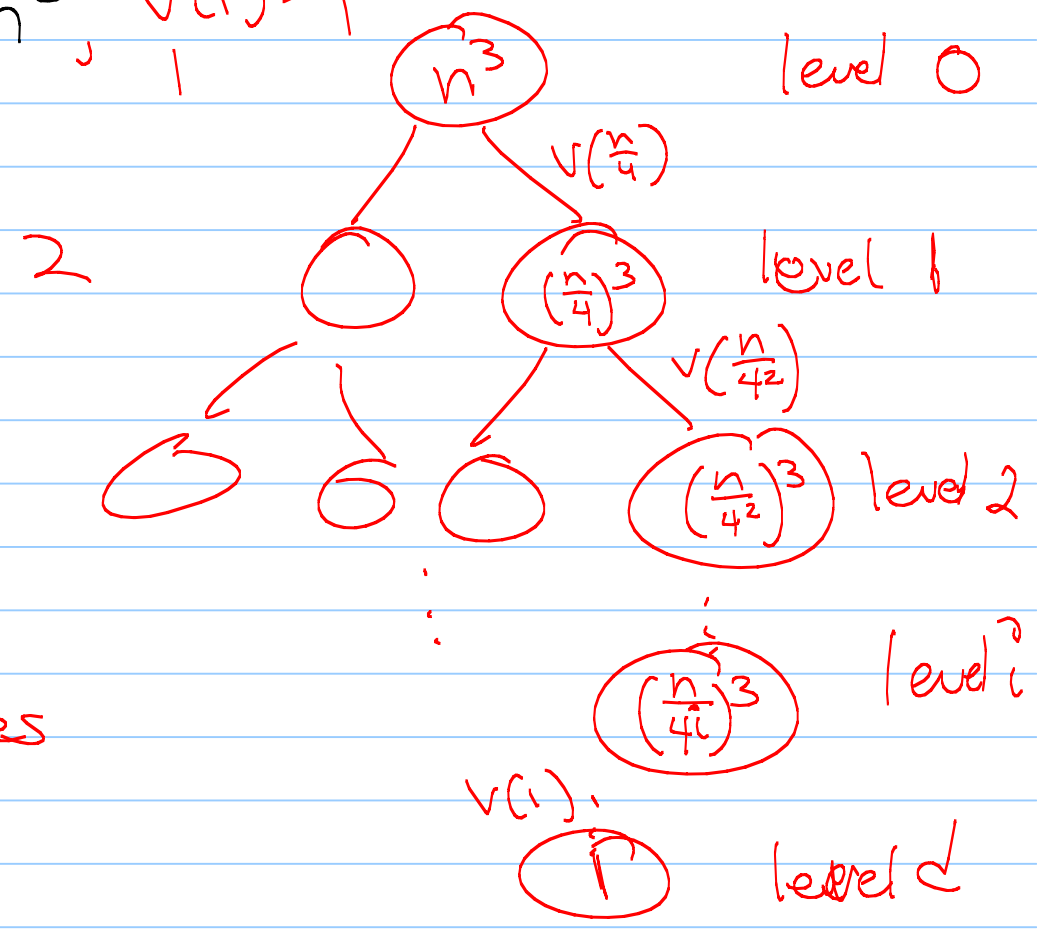 v(1) = 1
n³ level 0
v(n/4)
2 (n/4)³ level 1
v(n/4²)
(n/4²)³ level 2
(n/4ⁱ)³ level i
es
v(1)
1 level d